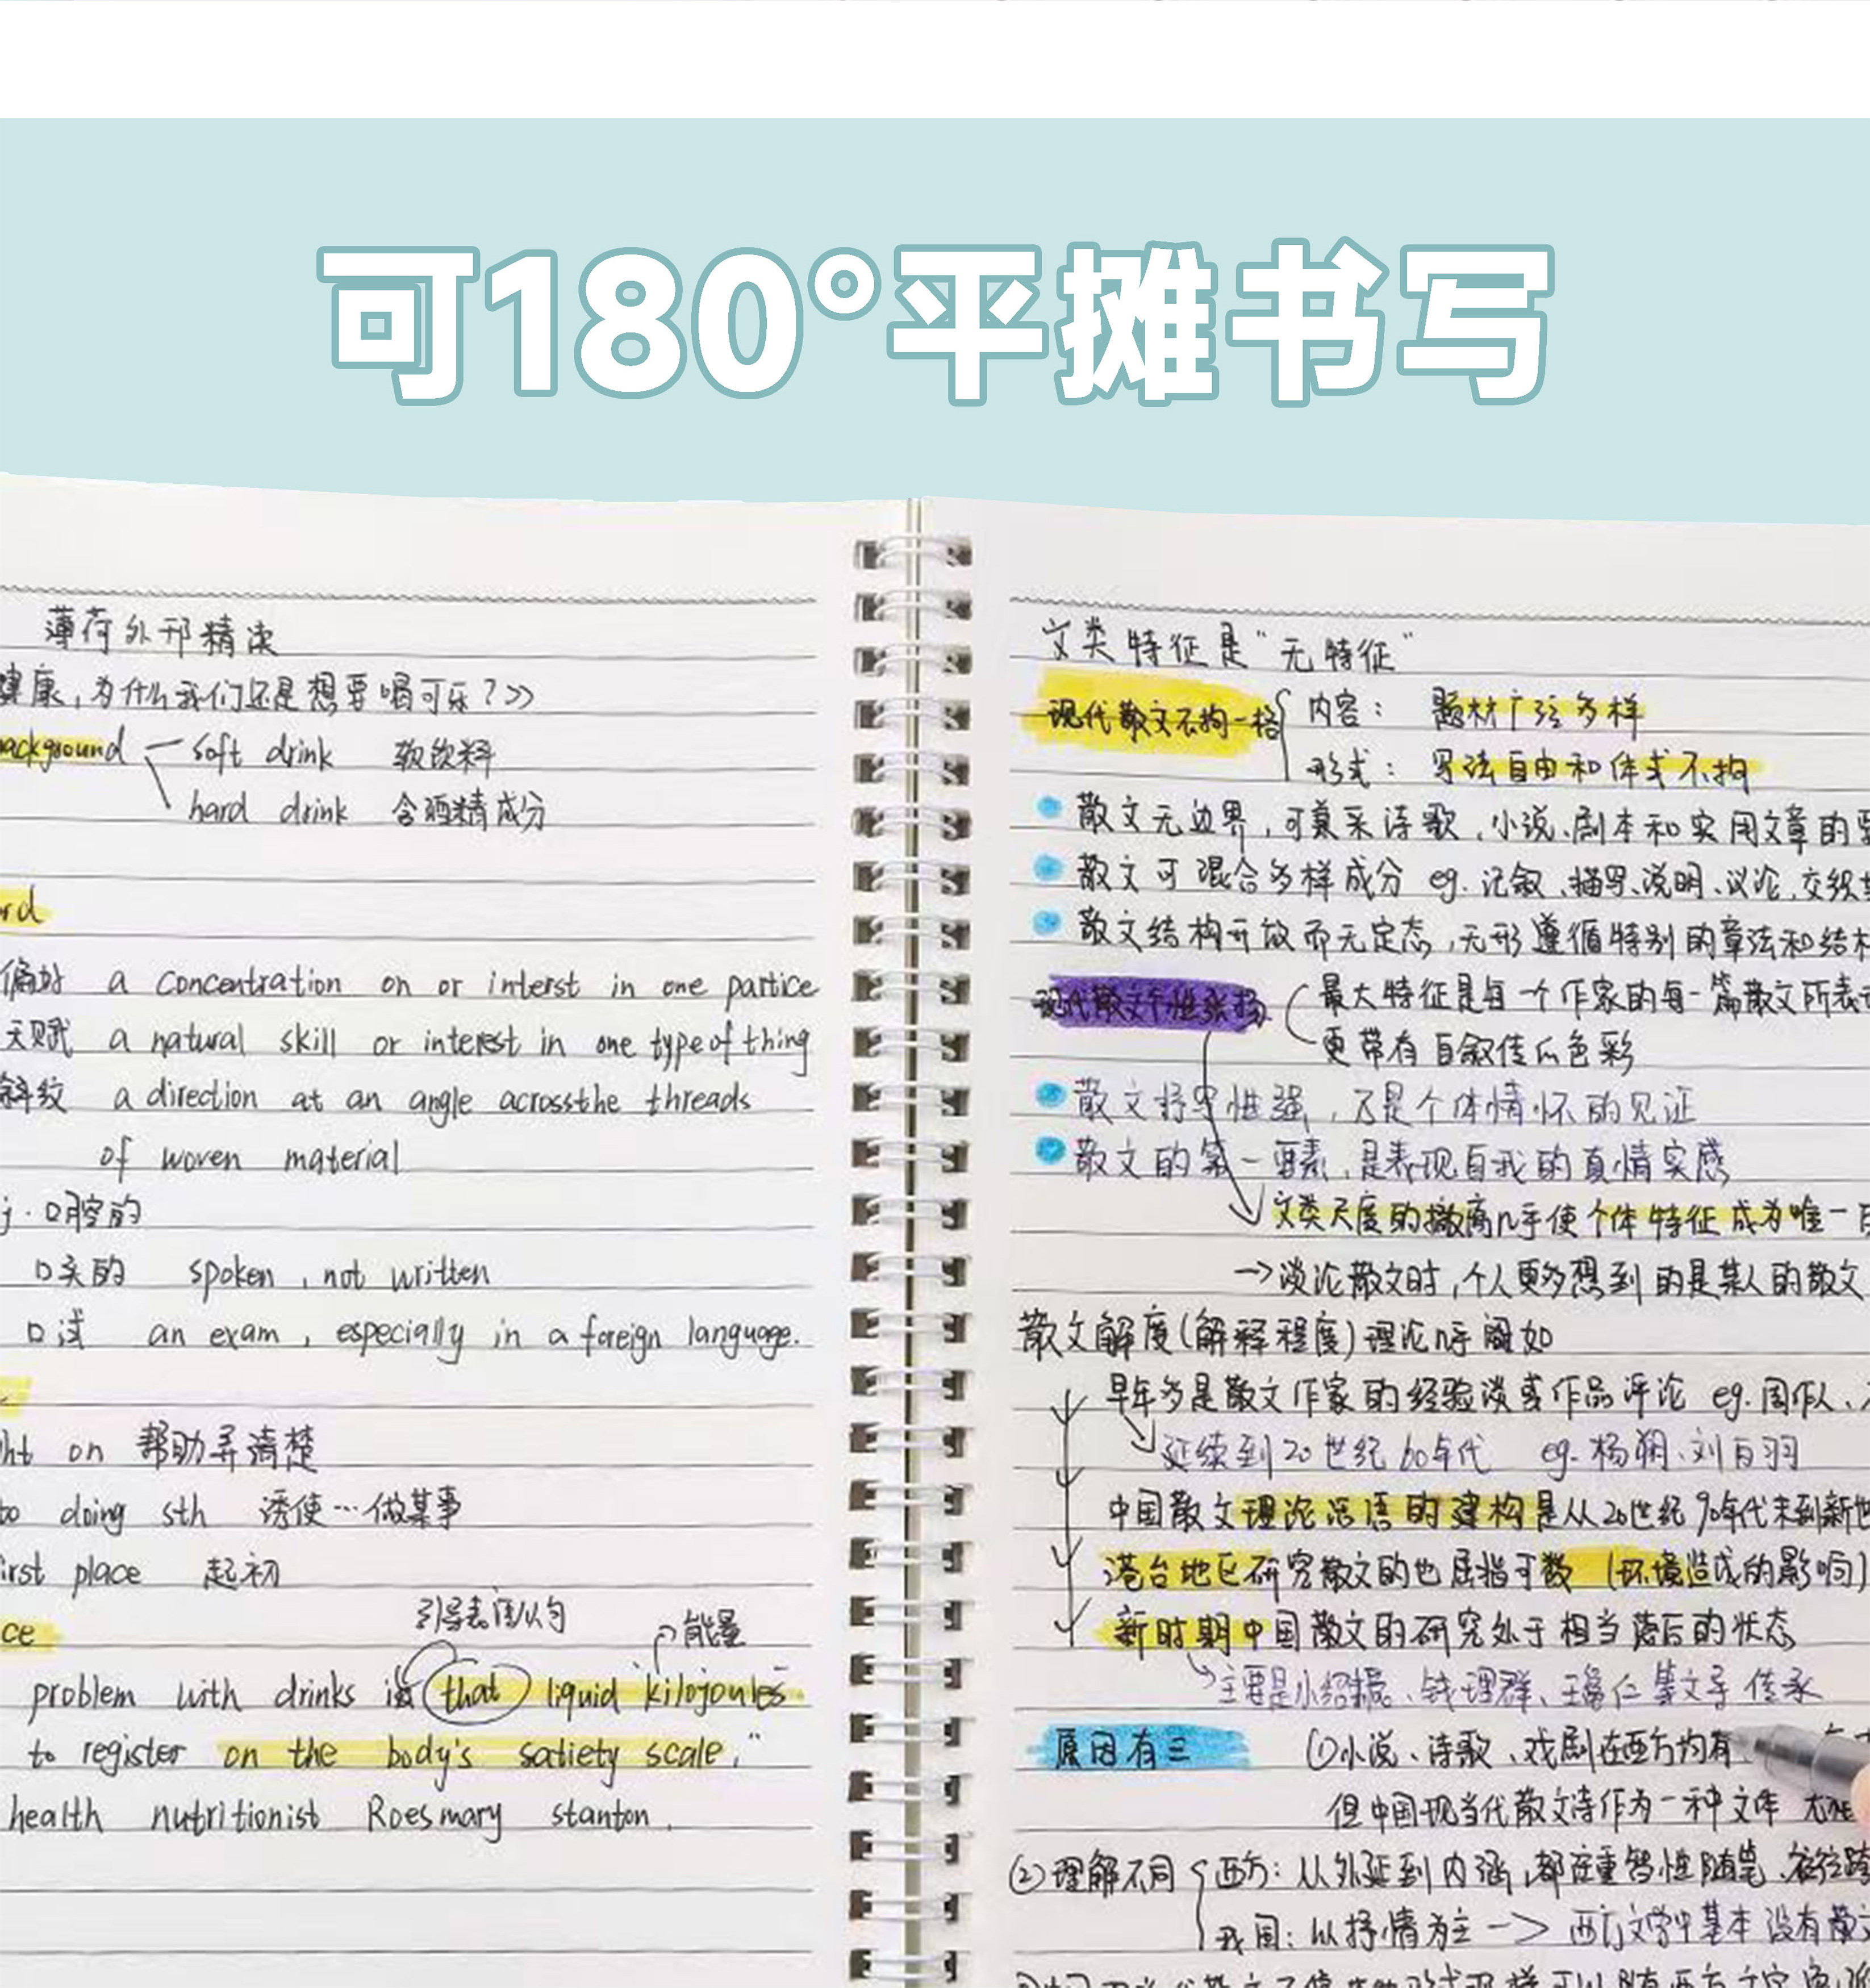 可180°平摊书写
薄荷外刊精读
健康,为什么我们还是想要喝可乐?》
ackground soft drink 软饮料
hard drink 含酒精成分
rd
偏好 a concentration on or interst in one partice
天赋 a natural skill or interest in one type of thing
斜纹 a direction at an angle across the threads
of woven material
j. 口腔的
口头的 spoken, not written
口试 an exam, especially in a foreign language.
ht on 帮助弄清楚
to doing sth 诱使…做某事
irst place 起初
ce
引导表语从句 能量
problem with drinks is that liquid kilojoules
to register on the body's satiety scale."
health nutritionist Roesmary stanton.
文类特征是“无特征”
现代散文不拘一格 内容: 题材广泛多样
形式: 写法自由和体式不拘
散文无边界,可兼采诗歌、小说、剧本和实用文章的
散文可混合多样成分 eg. 记叙、描写、说明、议论,交织
散文结构开放而无定态,无形遵循特别的章法和结构
现代散文个性张扬 最大特征是每一个作家的每一篇散文所表
更带有自叙传的色彩
散文抒写性强,乃是个体情怀的见证
散文的第一要素,是表现自我的真情实感
文类尺度的撤离几乎使个体特征成为唯一
→谈论散文时,个人更多想到的是某人的散文
散文解度(解释程度)理论几乎阙如
早年多是散文作家的经验谈或作品评论 eg. 周作人、
延续到20世纪60年代 eg. 杨朔、刘白羽
中国散文理论话语的建构是从20世纪90年代末到新世
港台地区研究散文的也屈指可数 (环境造成的影响)
新时期中国散文的研究处于相当落后的状态
主要是 钱理群、 等 传承
原因有三 ①小说、诗歌、戏剧在西方均有
但中国现当代散文 作为一种文体
②理解不同 西方: 从外延到内涵,都注重智性随笔、
我国: 以抒情为主 —> 西方文学中基本没有散文